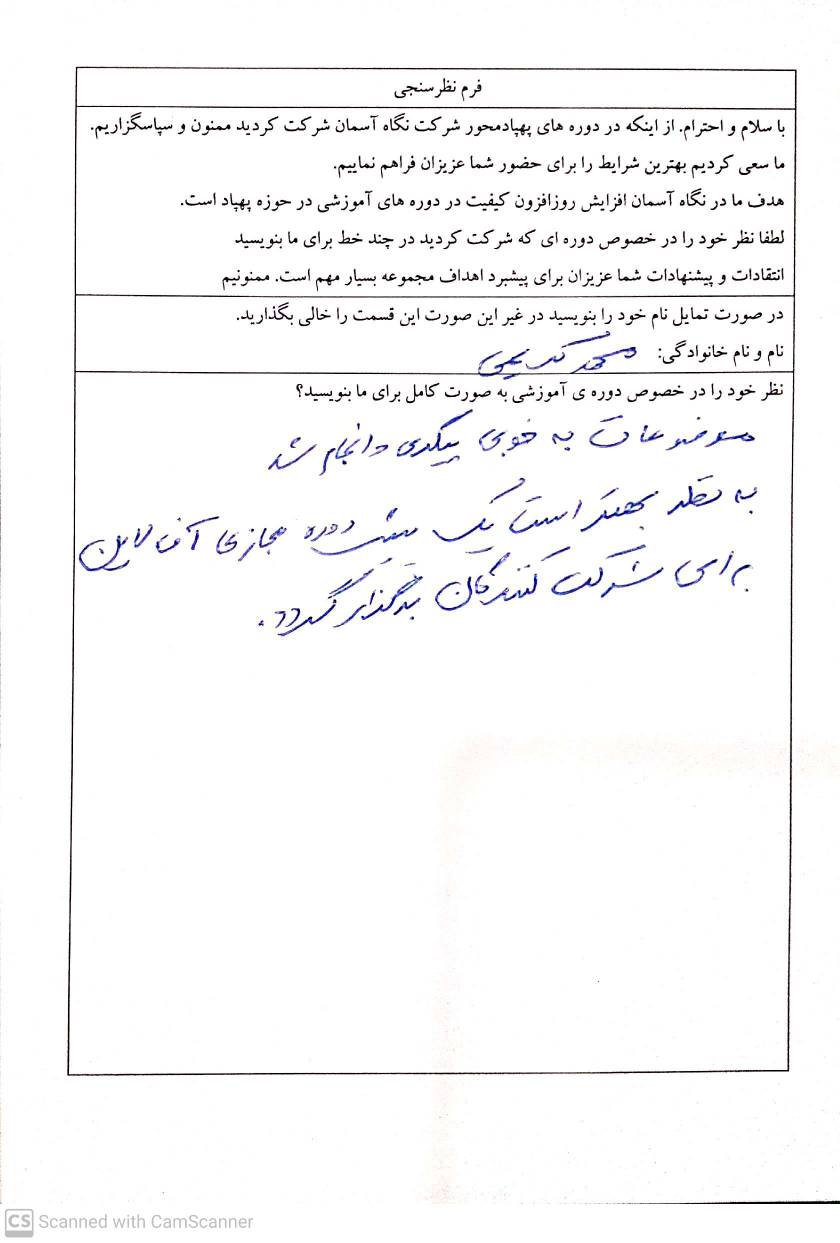 فرم نظرسنجی
با سلام و احترام. از اینکه در دوره های پهپادمحور شرکت نگاه آسمان شرکت کردید ممنون و سپاسگزاریم.
ما سعی کردیم بهترین شرایط را برای حضور شما عزیزان فراهم نماییم.
هدف ما در نگاه آسمان افزایش روزافزون کیفیت در دوره های آموزشی در حوزه پهپاد است.
لطفا نظر خود را در خصوص دوره ای که شرکت کردید در چند خط برای ما بنویسید
انتقادات و پیشنهادات شما عزیزان برای پیشبرد اهداف مجموعه بسیار مهم است. ممنونیم
در صورت تمایل نام خود را بنویسید در غیر این صورت این قسمت را خالی بگذارید.
نام و نام خانوادگی: محمد کریمی
نظر خود را در خصوص دوره ی آموزشی به صورت کامل برای ما بنویسید؟
موضوعات به خوبی پیگیری و انجام شد
به نظر بهتر است یک پیش دوره مجازی آف لاین
برای شرکت کنندگان برگزار گردد.
CS Scanned with CamScanner